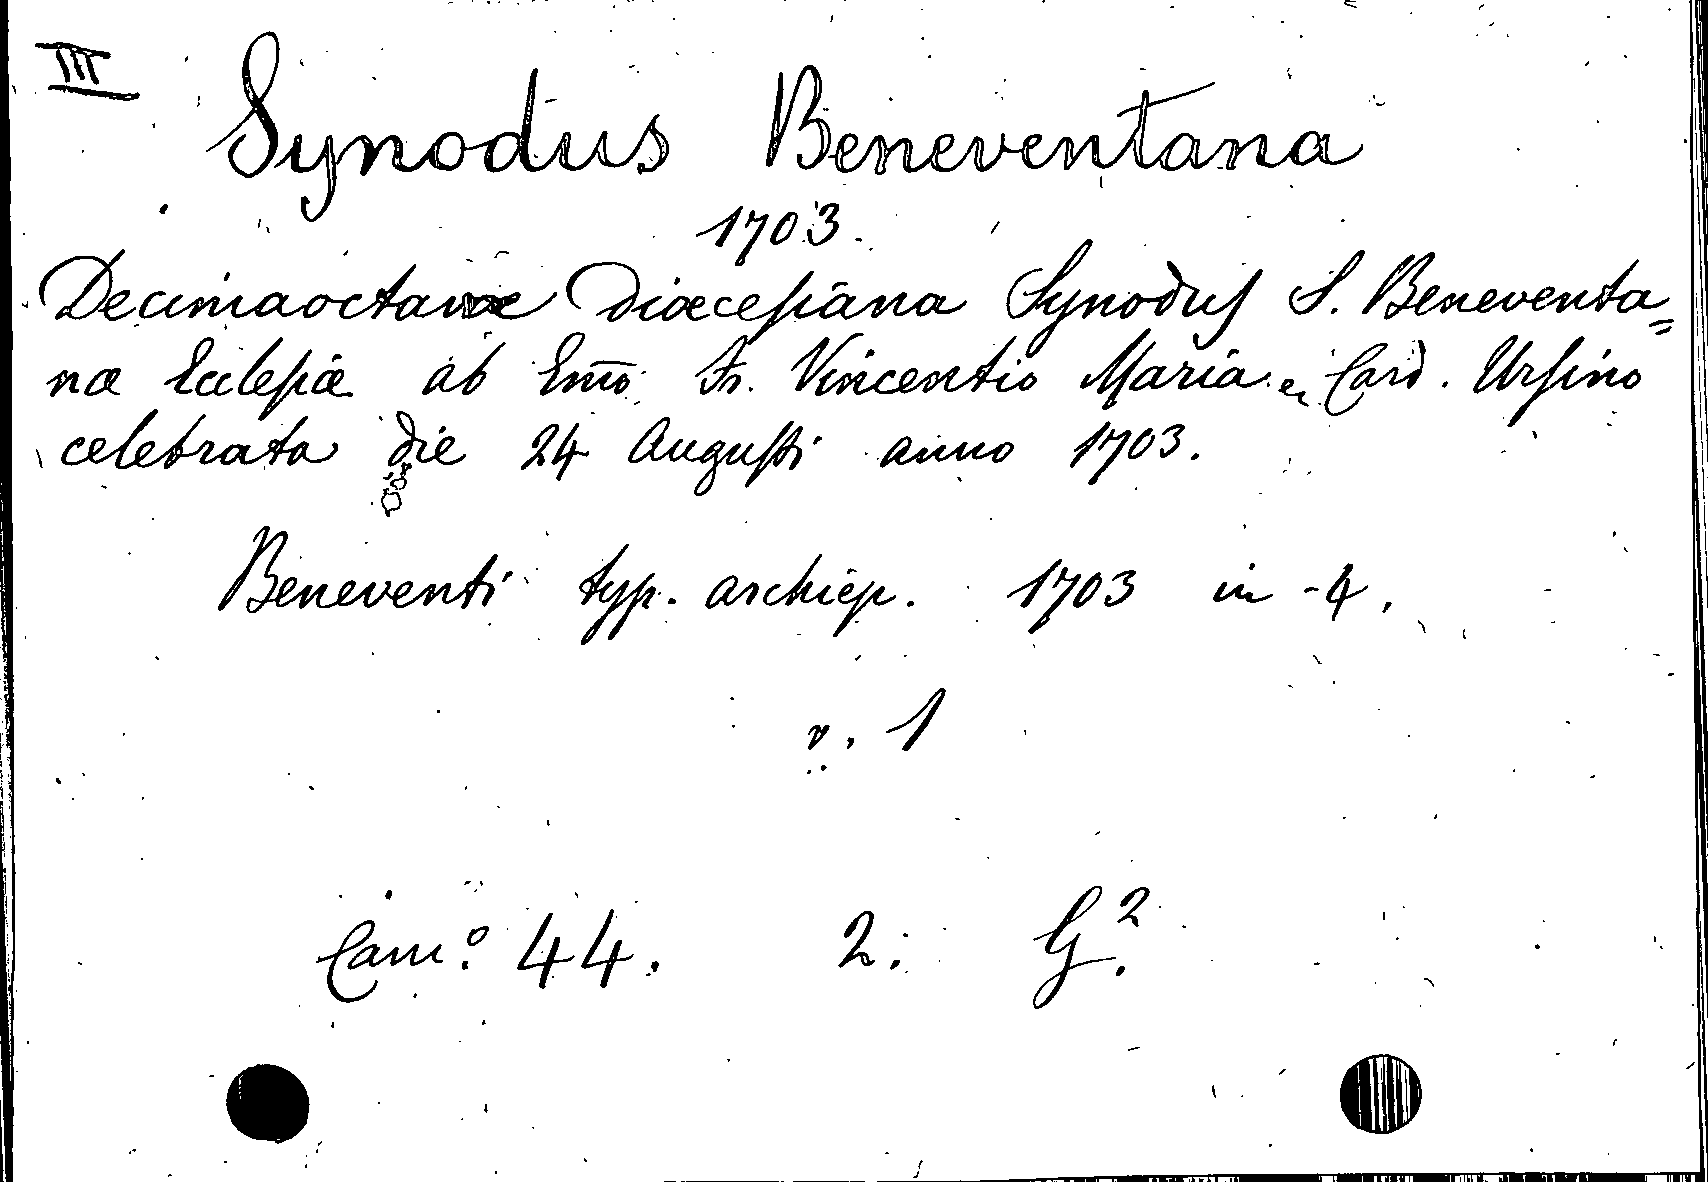 III
Synodus Beneventana
1703.
Decimaoctava Diœcesiana Synodus S. Beneventa=
næ Ecclesiæ ab Em̃o Fr. Vincentio Maria Card. Ursino
celebrata die 24 Augusti anno 1703.
Beneventi typ. archiep. 1703 in -4.
v. 1
Cam.º 44. 2. G.²